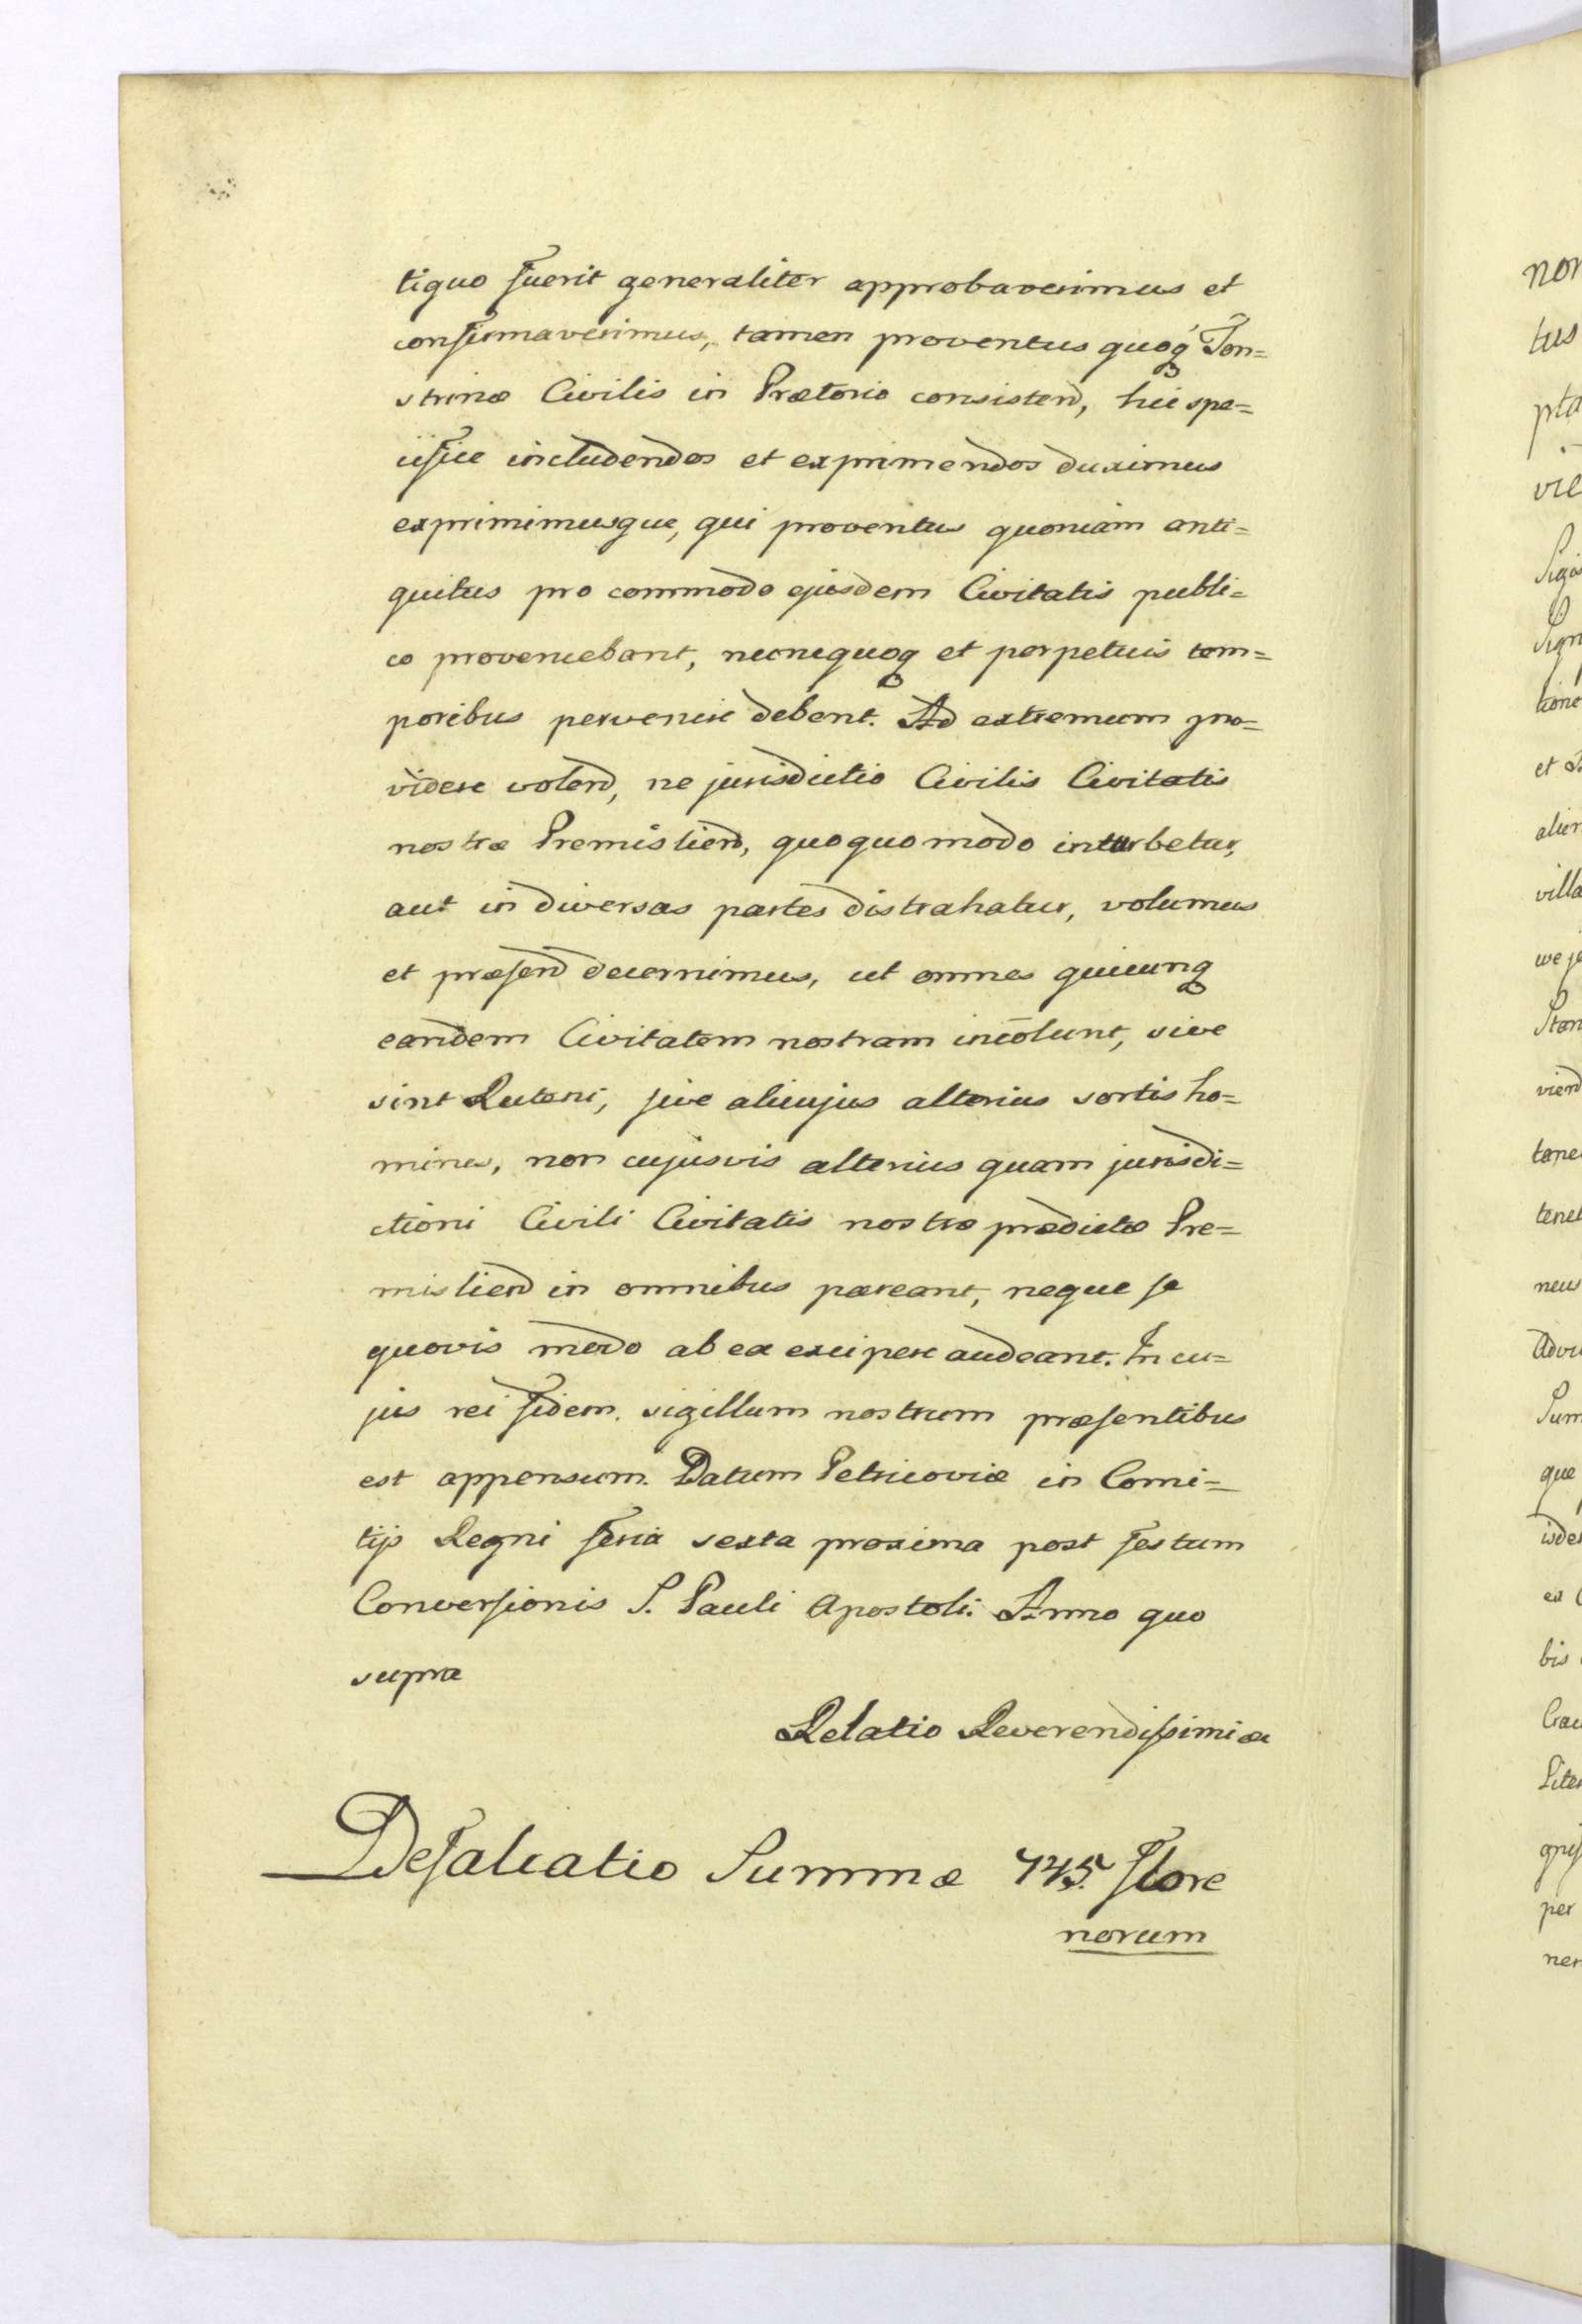 tiquo fuerit generaliter approbaverimus et
confirmaverimus, tamen proventus quoq́ Ton=
strinæ Civilis in Prætorio consisten̄, hic spe=
cifice includendos et exprimendos duximus
exprimimusque, qui proventus quoniam anti=
quitus pro commodo ejusdem Civitatis publi=
co proveniebant, nuncquoq et perpetuis tem=
poribus pervenire debent. Ad extremum pro=
videre volen̄, ne jurisdictio Civilis Civitatis
nostræ Premislien̄, quoquomodo inturbetur,
aut in diversas partes distrahatur, volumus
et præsen̄ decernimus, ut omnes quicunq
eandem Civitatem nostram incolunt, sive
sint Ruteni, sive alicujus alterius sortis ho=
mines, non cujusvis alterius quam jurisdi=
ctioni Civili Civitatis nostræ prædictæ Pre=
mislien̄ in omnibus pareant, neque se
quovis modo ab ea excipere audeant. In cu=
jus rei fidem sigillum nostrum præsentibus
est appensum. Datum Petricoviæ in Comi=
tijs Regni feria sexta proxima post festum
Conversionis S. Pauli Apostoli. Anno quo
supra
Relatio Reverendissimi &c
Defalcatio Summæ 745. Flore
norum
non
tus
pta
vie
tione
et
alien
villa
vien
tene
neus
Advo
Sum
que
bis
per
ner